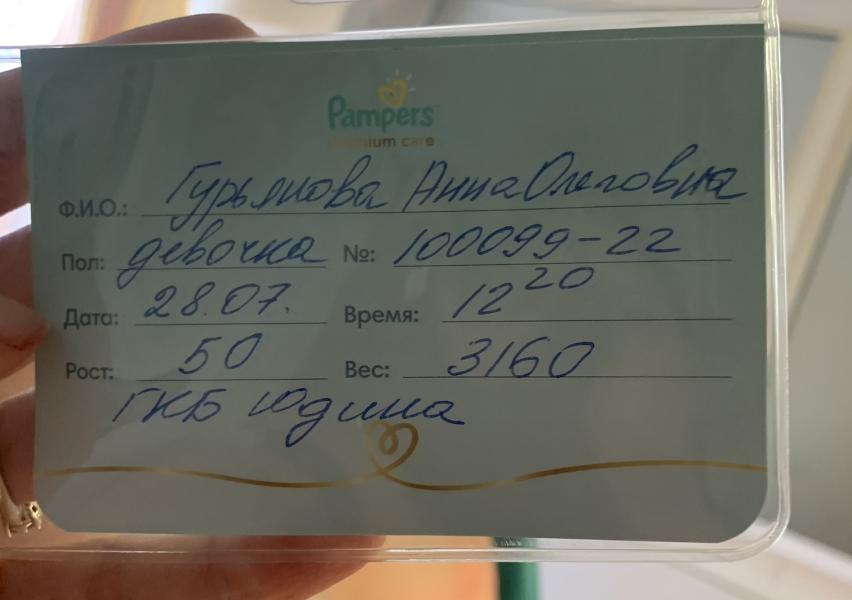 Pampers
premium care
Ф.И.О.: Гурьянова Анна Олеговна
Пол: девочка №: 100099-22
Дата: 28.07. Время: 12 20
Рост: 50 Вес: 3160
ГКБ Юдина